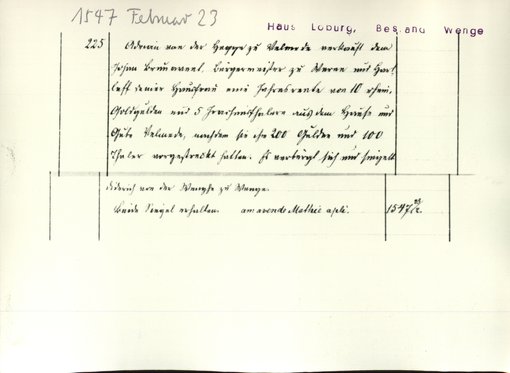 1547 Februar 23
Haus Loburg, Bestand Wenge
225 Adrian von der Hegge zu Velmede verkauft dem
Johan Brünwerel, Bürgermeister zu Werne und
seiner Hausfrau eine Jahresrente von 10 rhein.
Goldgulden und 5 Joachimsthalern aus dem Hause und
Gute Velmede, nachdem sie ihm 200 Gulden und 100
Thaler vorgestreckt hatten. Es verbürgt sich und siegelt
Diderich von der Wenghe zu Wenge.
Beide Siegel erhalten. am avende Mathie apli. 1547 23/2.